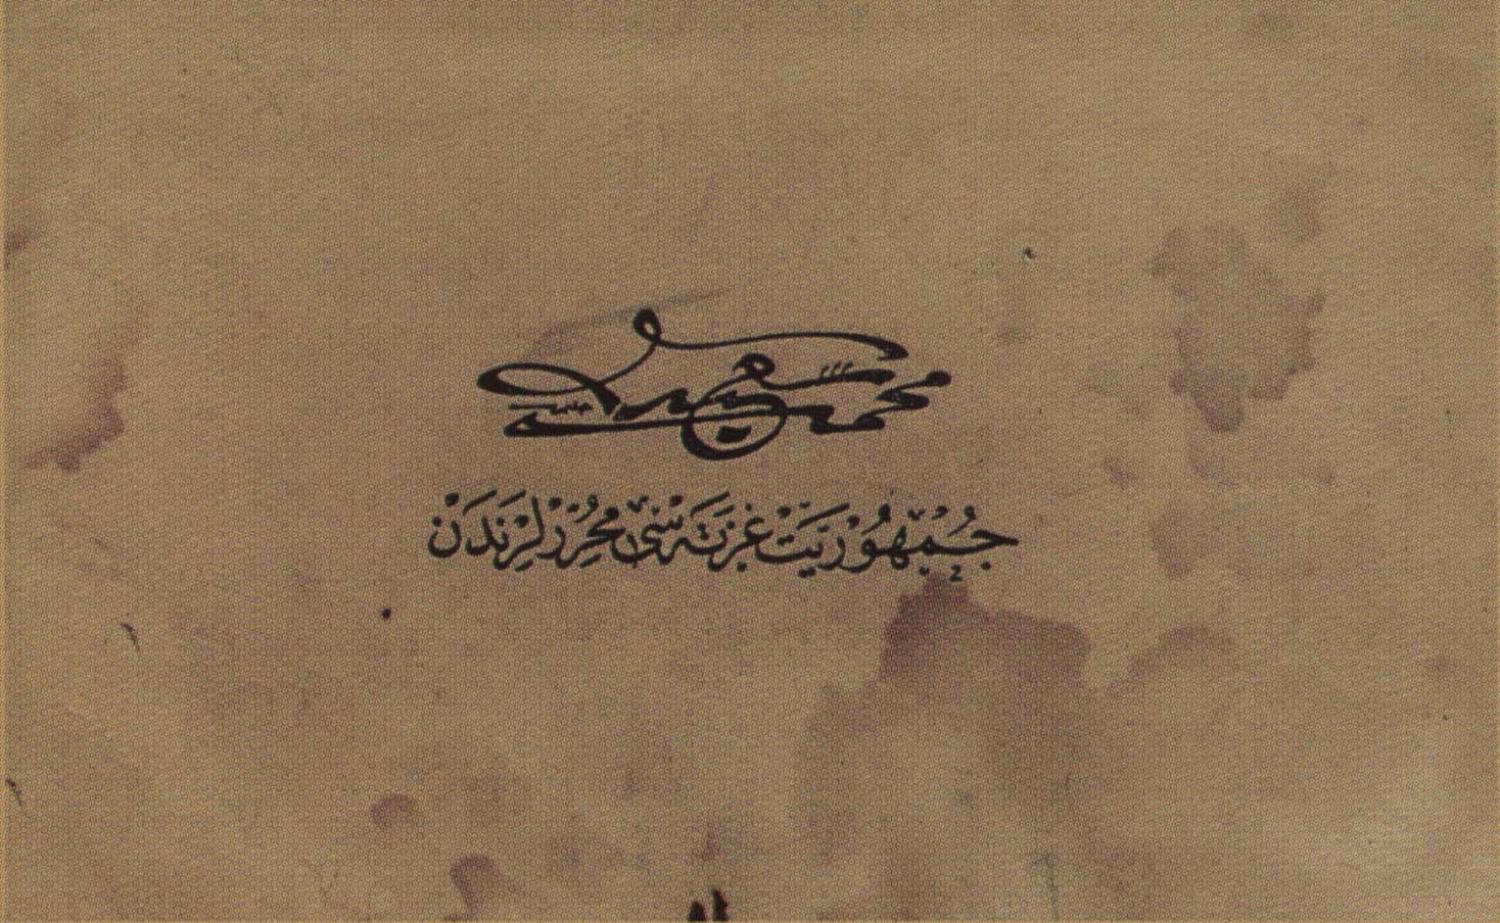 محمد سعيد
جمهوريت غزته سى محررلرندن